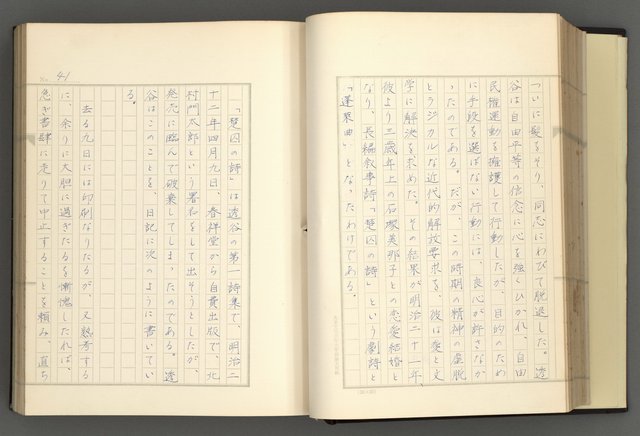 ついに髪をそり、同志にわびて脱退した。透
谷は自由平等の信念に心を強くひかれ、自由
民権運動を擁護して行動したが、目的のため
に手段を選ばない行動には、良心が許さなか
ったのである。だが、この時期の精神の虚脱
とラジカルな近代的解放要求を、彼は愛と文
学に解決を求めた。その結果が明治二十一年、
彼より三歳年上の石塚美那子との恋愛結婚と
なり、長編叙事詩「楚囚の詩」という劇詩と
「蓬莱曲」となったわけである。
「楚囚の詩」は透谷の第一詩集で、明治二
十二年四月九日、春祥堂から自費出版で、北
村門太郎という署名をして出そうとしたが、
発売に臨んで破棄してしまったのである。透
谷はこのことを、日記に次のように書いてい
る。
去る九日には印刷なりたるが、又熟考する
に、余りに大胆に過ぎたるを慚愧したれば、
急ぎ書肆に走りて中止することを頼み、直ち
No. 41